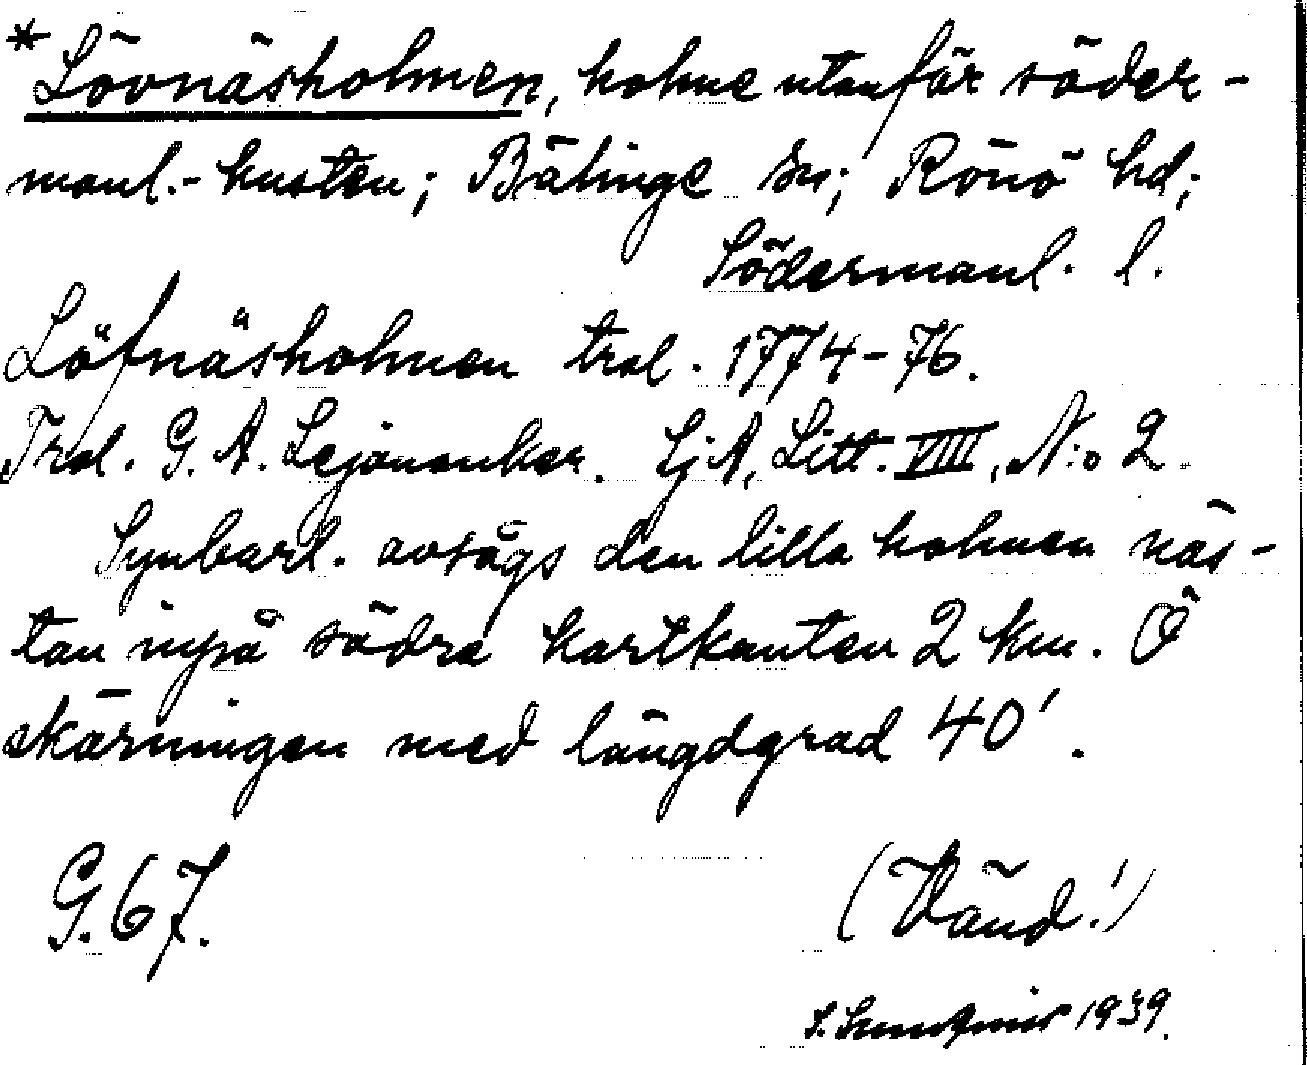 *Lövnäsholmen, holme utanför söder-
manl.-kusten; Bälinge sn; Rönö hd;
Södermanl. l.
Löfnäsholmen trol. 1774-76.
Trol. G. A. Lejonanker. LjA, Litt. VIII, N:o 2.
Synbarl. avsågs den lilla holmen näs-
tan inpå södra kartkanten 2 km. Ö
skärningen med längdgrad 40'.
G. 67.
(Vänd!)
1939.